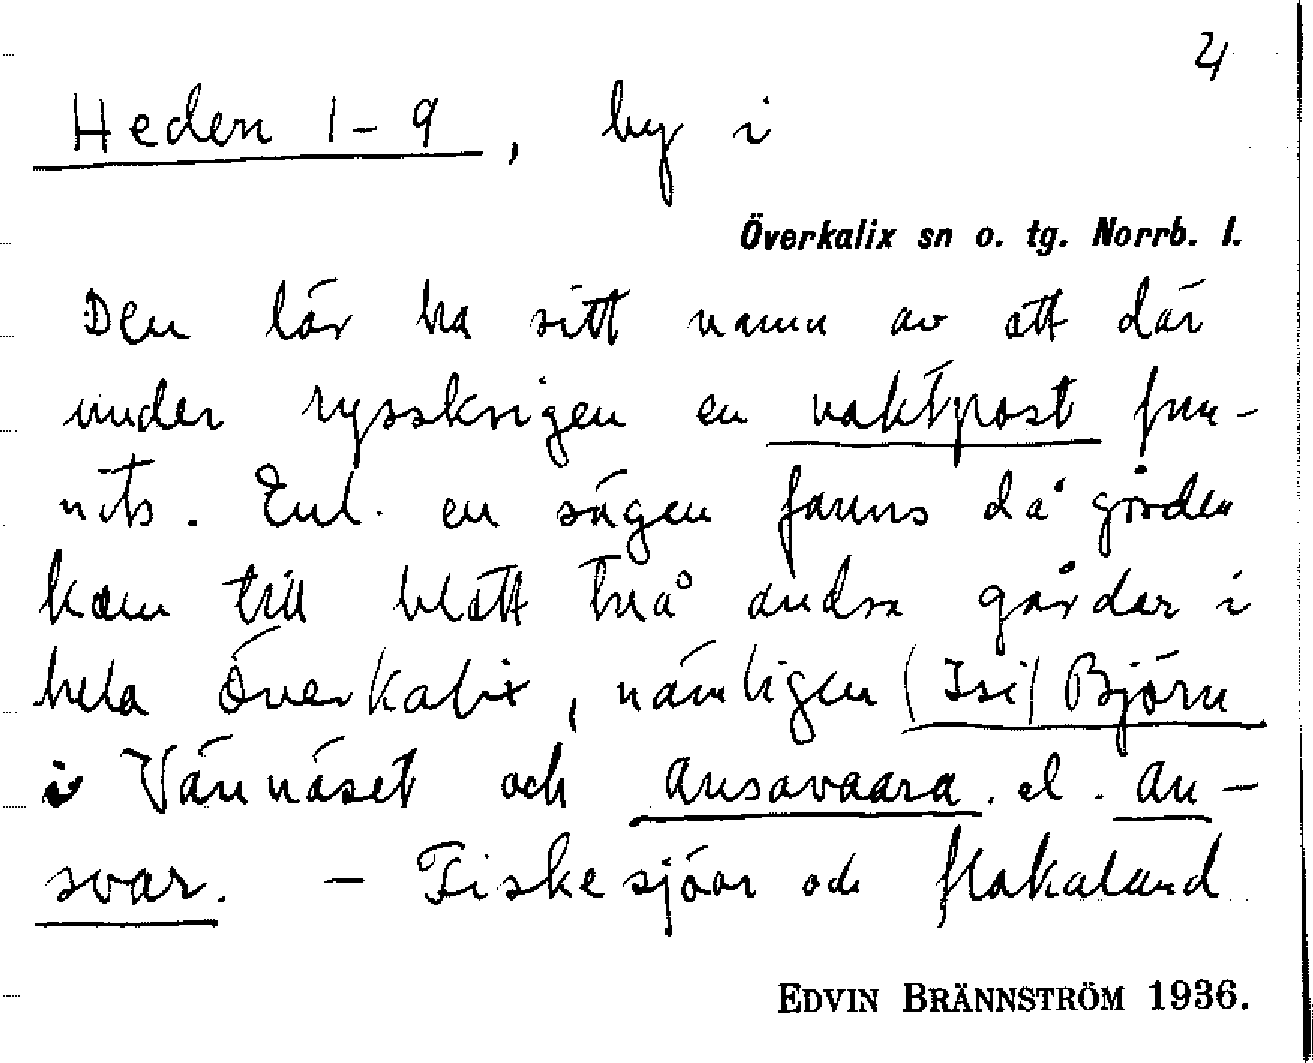 21
Heden 1-9, by i
Överkalix sn o. tg. Norrb. l.
Den lär ha sitt namn av att där
under rysskrigen en vaktpost fun-
nits. Enl. en sägen fanns då gården
kom till blott två andra gårdar i
hela Överkalix, nämligen (Isi) Björn
i Vännäset och Ansavaara. el. An-
svar. - Fiskesjöar och flakaland
EDVIN BRÄNNSTRÖM 1936.